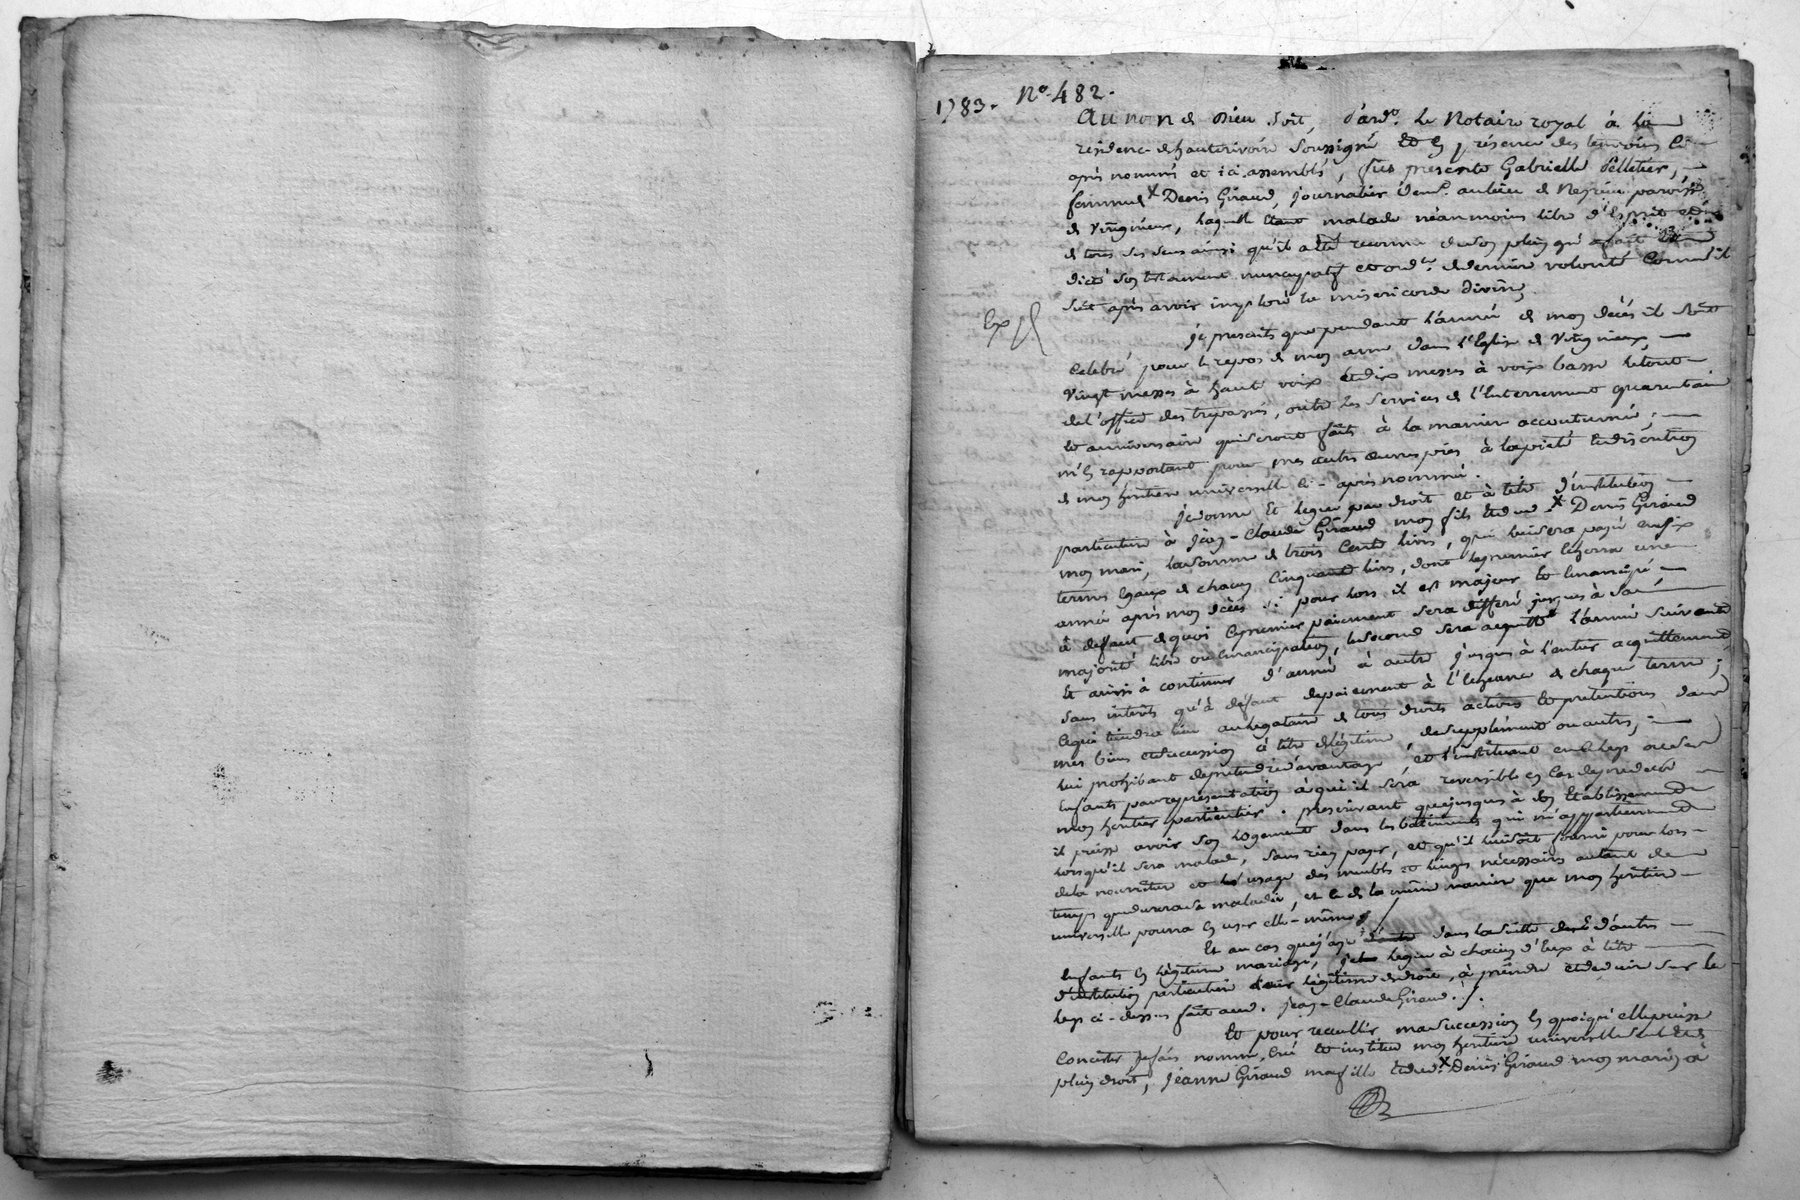 1783. No. 482.
Au nom de Dieu soit, pardt. le Notaire royal à la
residence d'hauterivoire soussigné et en présence des temoins ci-
après nommés et ici assemblés, fut presente Gabrielle Pelletier,
femme de Denis Giraud, journalier demt. au lieu de paroisse
de Virigneux, laquelle étant malade néanmoins libre d'Esprit et
de tous ses sens ainsi qu'il a été reconnu de son plein gré a fait et
dicté son testament nuncupatif et ordre. de derniere volonté comme il
suit après avoir imploré la misericorde divine,
Exp
je prescrits que pendant l'année de mon décès il soit
celebré pour le repos de mon ame dans l'Eglise de Virigneux,
vingt messes à haute voix et dix messes à voix basse le tout
de l'office des trepassés, outre les services de l'Enterrement quarantaine
et anniversaire qui seront faits à la maniere accoutumée,
m'en rapportant pour mes autres œuvres pies à la pieté et discretion
de mon heritiere universelle ci-après nommée.
je donne et legue par droit et à titre d'institution
particuliere à Jean-Claude Giraud mon fils et dud. Denis Giraud
mon mari, la somme de trois cents livres, qui lui sera payée en six
termes egaux de chacun cinquante livres, dont le premier echerra une
année après mon décès si pour lors il est majeur et emancipé,
à defaut de quoi le premier paiement sera differé jusques à sa
majorité libre ou emancipation, le second sera acquitté l'année suivante
et ainsi à continuer d'année à autre jusques à l'entier acquittement
sans interêts qu'à defaut de paiement à l'echeance de chaque terme;
ce qui tiendra lieu au legataire de tous droits actions et pretentions dans
mes biens et succession à titre de légitime, de supplément ou autres,
lui prohibant de pretendre davantage, et l'instituant en ce legs ou ses
enfants par representation à qui il sera reversible en cas de predecès
mon heritier particulier. prescrivant que jusques à son Etablissement
il puisse avoir son logement dans les bâtiments qui m'appartiennent
lorsqu'il sera malade, sans rien payer, et qu'il lui soit fourni pour lors
de la nourriture et l'usage des meubles et linges nécessaires autant de
temps que durera sa maladie, et ce de la même maniere que mon heritiere
universelle pourra en user elle-même
Et au cas que j'aye dans la suite d'autres
enfants en légitime mariage, je legue à chacun d'Eux à titre
d'institution particuliere leur légitime de droit, à prendre et deduire sur le
legs ci-dessus fait aud. Jean-Claude Giraud.
Et pour recueillir ma succession en quoi qu'elle puisse
consister je fais nomme, crée et institue mon heritiere universelle seule et de
plein droit, Jeanne Giraud ma fille et dud. Denis Giraud mon mari, à